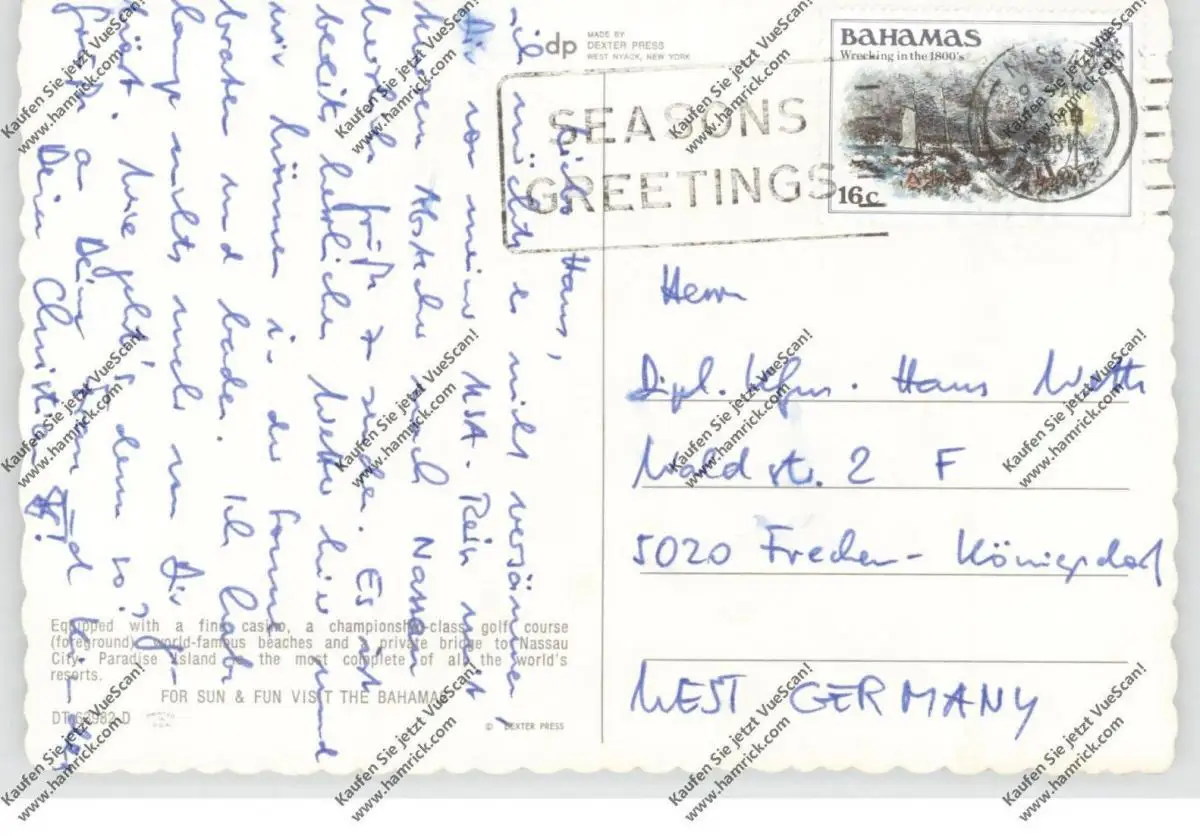 dp
MADE BY
DEXTER PRESS
WEST NYACK, NEW YORK
BAHAMAS
Wrecking in the 1800's
16c
SEASONS
GREETINGS
Lieber Hans,
ich möchte es nicht versäumen,
Dir von meiner USA-Reise mit
kurzem Abstecher nach Nassau
herzliche Grüße zu senden. Es ist
bereits herrliches Wetter hier und
wir können in der Sonne
braten und baden. Ich habe
lange nichts mehr von Dir ge-
hört. Wie geht's denn so?
Grüße an Deine Frau und
Dein Christian
Herrn
Dipl. Kfm. Hans
Waldstr. 2 F
5020 Frechen-Königsdorf
WEST GERMANY
Equipped with a fine casino, a championship-class golf course
(foreground), world-famous beaches and a private bridge to Nassau
City, Paradise Island is the most complete of all the world's
resorts.
FOR SUN & FUN VISIT THE BAHAMAS
© DEXTER PRESS
Kaufen Sie jetzt VueScan!
www.hamrick.com